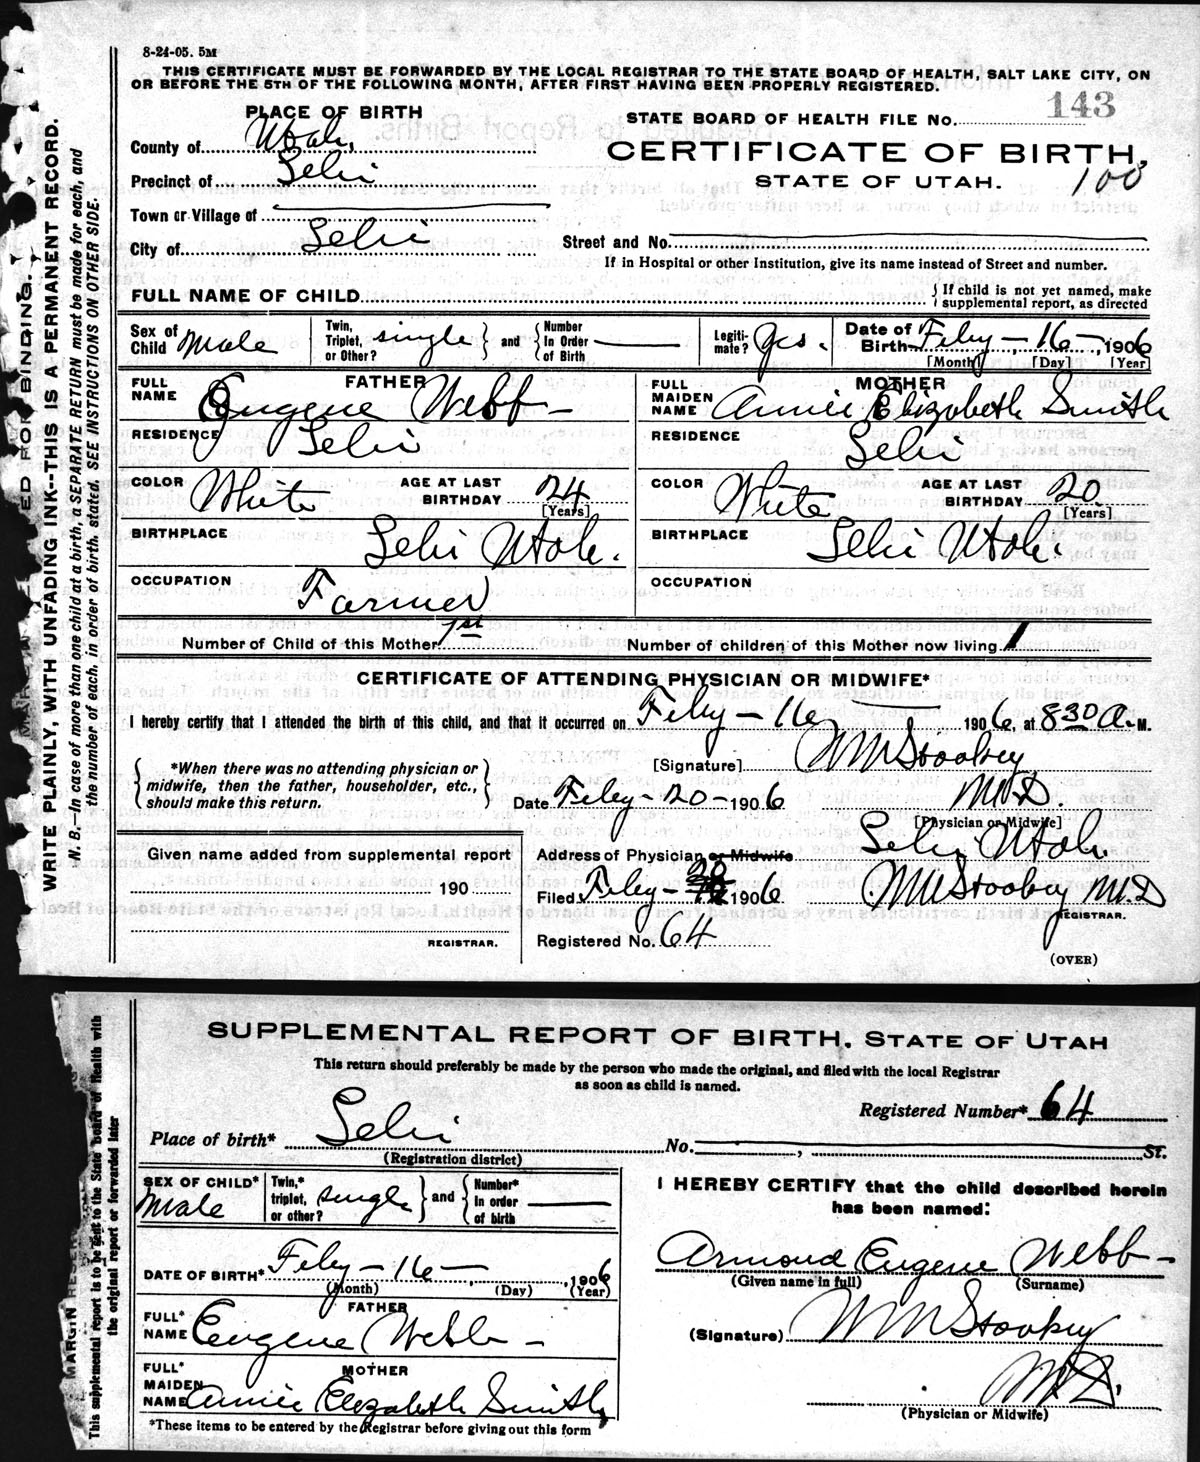 8-24-05. 5M
THIS CERTIFICATE MUST BE FORWARDED BY THE LOCAL REGISTRAR TO THE STATE BOARD OF HEALTH, SALT LAKE CITY, ON
OR BEFORE THE 5TH OF THE FOLLOWING MONTH, AFTER FIRST HAVING BEEN PROPERLY REGISTERED.
PLACE OF BIRTH
STATE BOARD OF HEALTH FILE No. 143
County of Utah,
CERTIFICATE OF BIRTH,
Precinct of Lehi
STATE OF UTAH. 100
Town or Village of
City of Lehi
Street and No.
If in Hospital or other Institution, give its name instead of Street and number.
FULL NAME OF CHILD { If child is not yet named, make supplemental report, as directed
Sex of Child Male
Twin, Triplet, or Other? single } and { Number In Order of Birth
Legitimate? Yes.
Date of Birth Feby - 16 -, 1906
[Month] [Day] [Year]
FATHER
FULL NAME Eugene Webb -
RESIDENCE Lehi
COLOR White
AGE AT LAST BIRTHDAY 24
[Years]
BIRTHPLACE Lehi Utah.
OCCUPATION Farmer
MOTHER
FULL MAIDEN NAME Annie Elizabeth Smith
RESIDENCE Lehi
COLOR White
AGE AT LAST BIRTHDAY 20
[Years]
BIRTHPLACE Lehi Utah.
OCCUPATION
Number of Child of this Mother 1st
Number of children of this Mother now living 1
CERTIFICATE OF ATTENDING PHYSICIAN OR MIDWIFE*
I hereby certify that I attended the birth of this child, and that it occurred on Feby - 16, 1906, at 830 A. M.
*When there was no attending physician or
midwife, then the father, householder, etc.,
should make this return.
[Signature]
M.D.
Date Feby - 20 - 1906
[Physician or Midwife]
Given name added from supplemental report
190
REGISTRAR.
Address of Physician or Midwife Lehi, Utah.
Filed Feby - 20 1906
M.D
REGISTRAR.
Registered No. 64
(OVER)
MARGIN RESERVED FOR BINDING.
WRITE PLAINLY, WITH UNFADING INK--THIS IS A PERMANENT RECORD.
N. B.—In case of more than one child at a birth, a SEPARATE RETURN must be made for each, and
the number of each, in order of birth, stated. SEE INSTRUCTIONS ON OTHER SIDE.
SUPPLEMENTAL REPORT OF BIRTH, STATE OF UTAH
This return should preferably be made by the person who made the original, and filed with the local Registrar
as soon as child is named.
Registered Number* 64
Place of birth* Lehi No. , St.
(Registration district)
SEX OF CHILD* Male
Twin,* triplet, or other? single } and { Number* in order of birth
DATE OF BIRTH* Feby - 16 -, 1906
(Month) (Day) (Year)
FATHER
FULL* NAME Eugene Webb -
MOTHER
FULL* MAIDEN NAME Annie Elizabeth Smith
*These items to be entered by the Registrar before giving out this form
I HEREBY CERTIFY that the child described herein
has been named:
Armond Eugene Webb -
(Given name in full) (Surname)
(Signature)
M.D.
(Physician or Midwife)
MARGIN RESER
This supplemental report is to be sent to the State Board of Health with
the original report or forwarded later